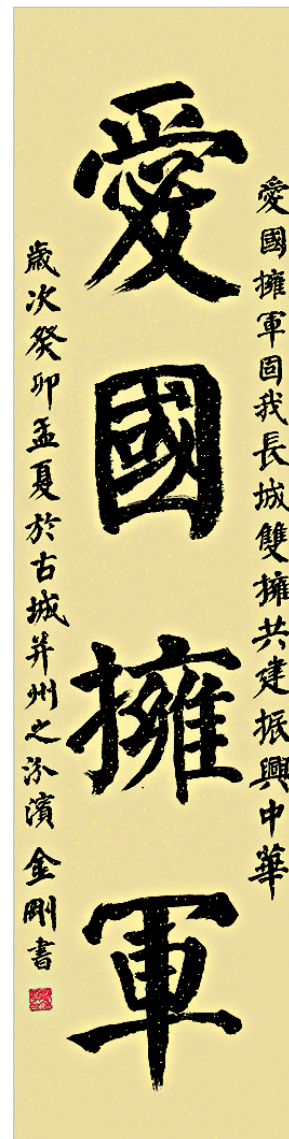 愛國擁軍固我長城雙擁共建振興中華
愛國擁軍
歲次癸卯孟夏於古城并州之汾濱 金剛書